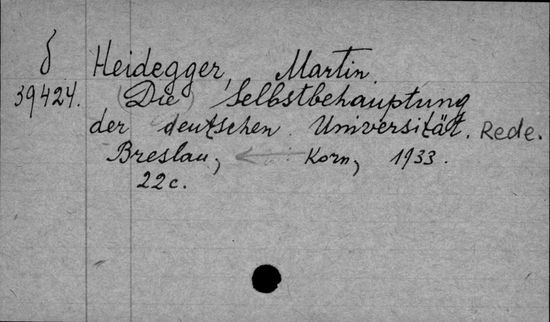 δ Heidegger, Martin.
39424. (Die) Selbstbehauptung
der deutschen Universität. Rede.
Breslau, ← Korn, 1933.
22c.